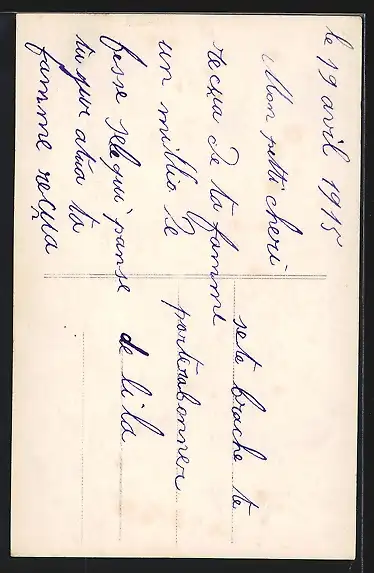 le 19 avril 1915
Mon petti cheri
recua de ta famme
un millio de
besse sele qui panse
tu que atua ta
famme reçua
sete brache te
porterabonner
de lila